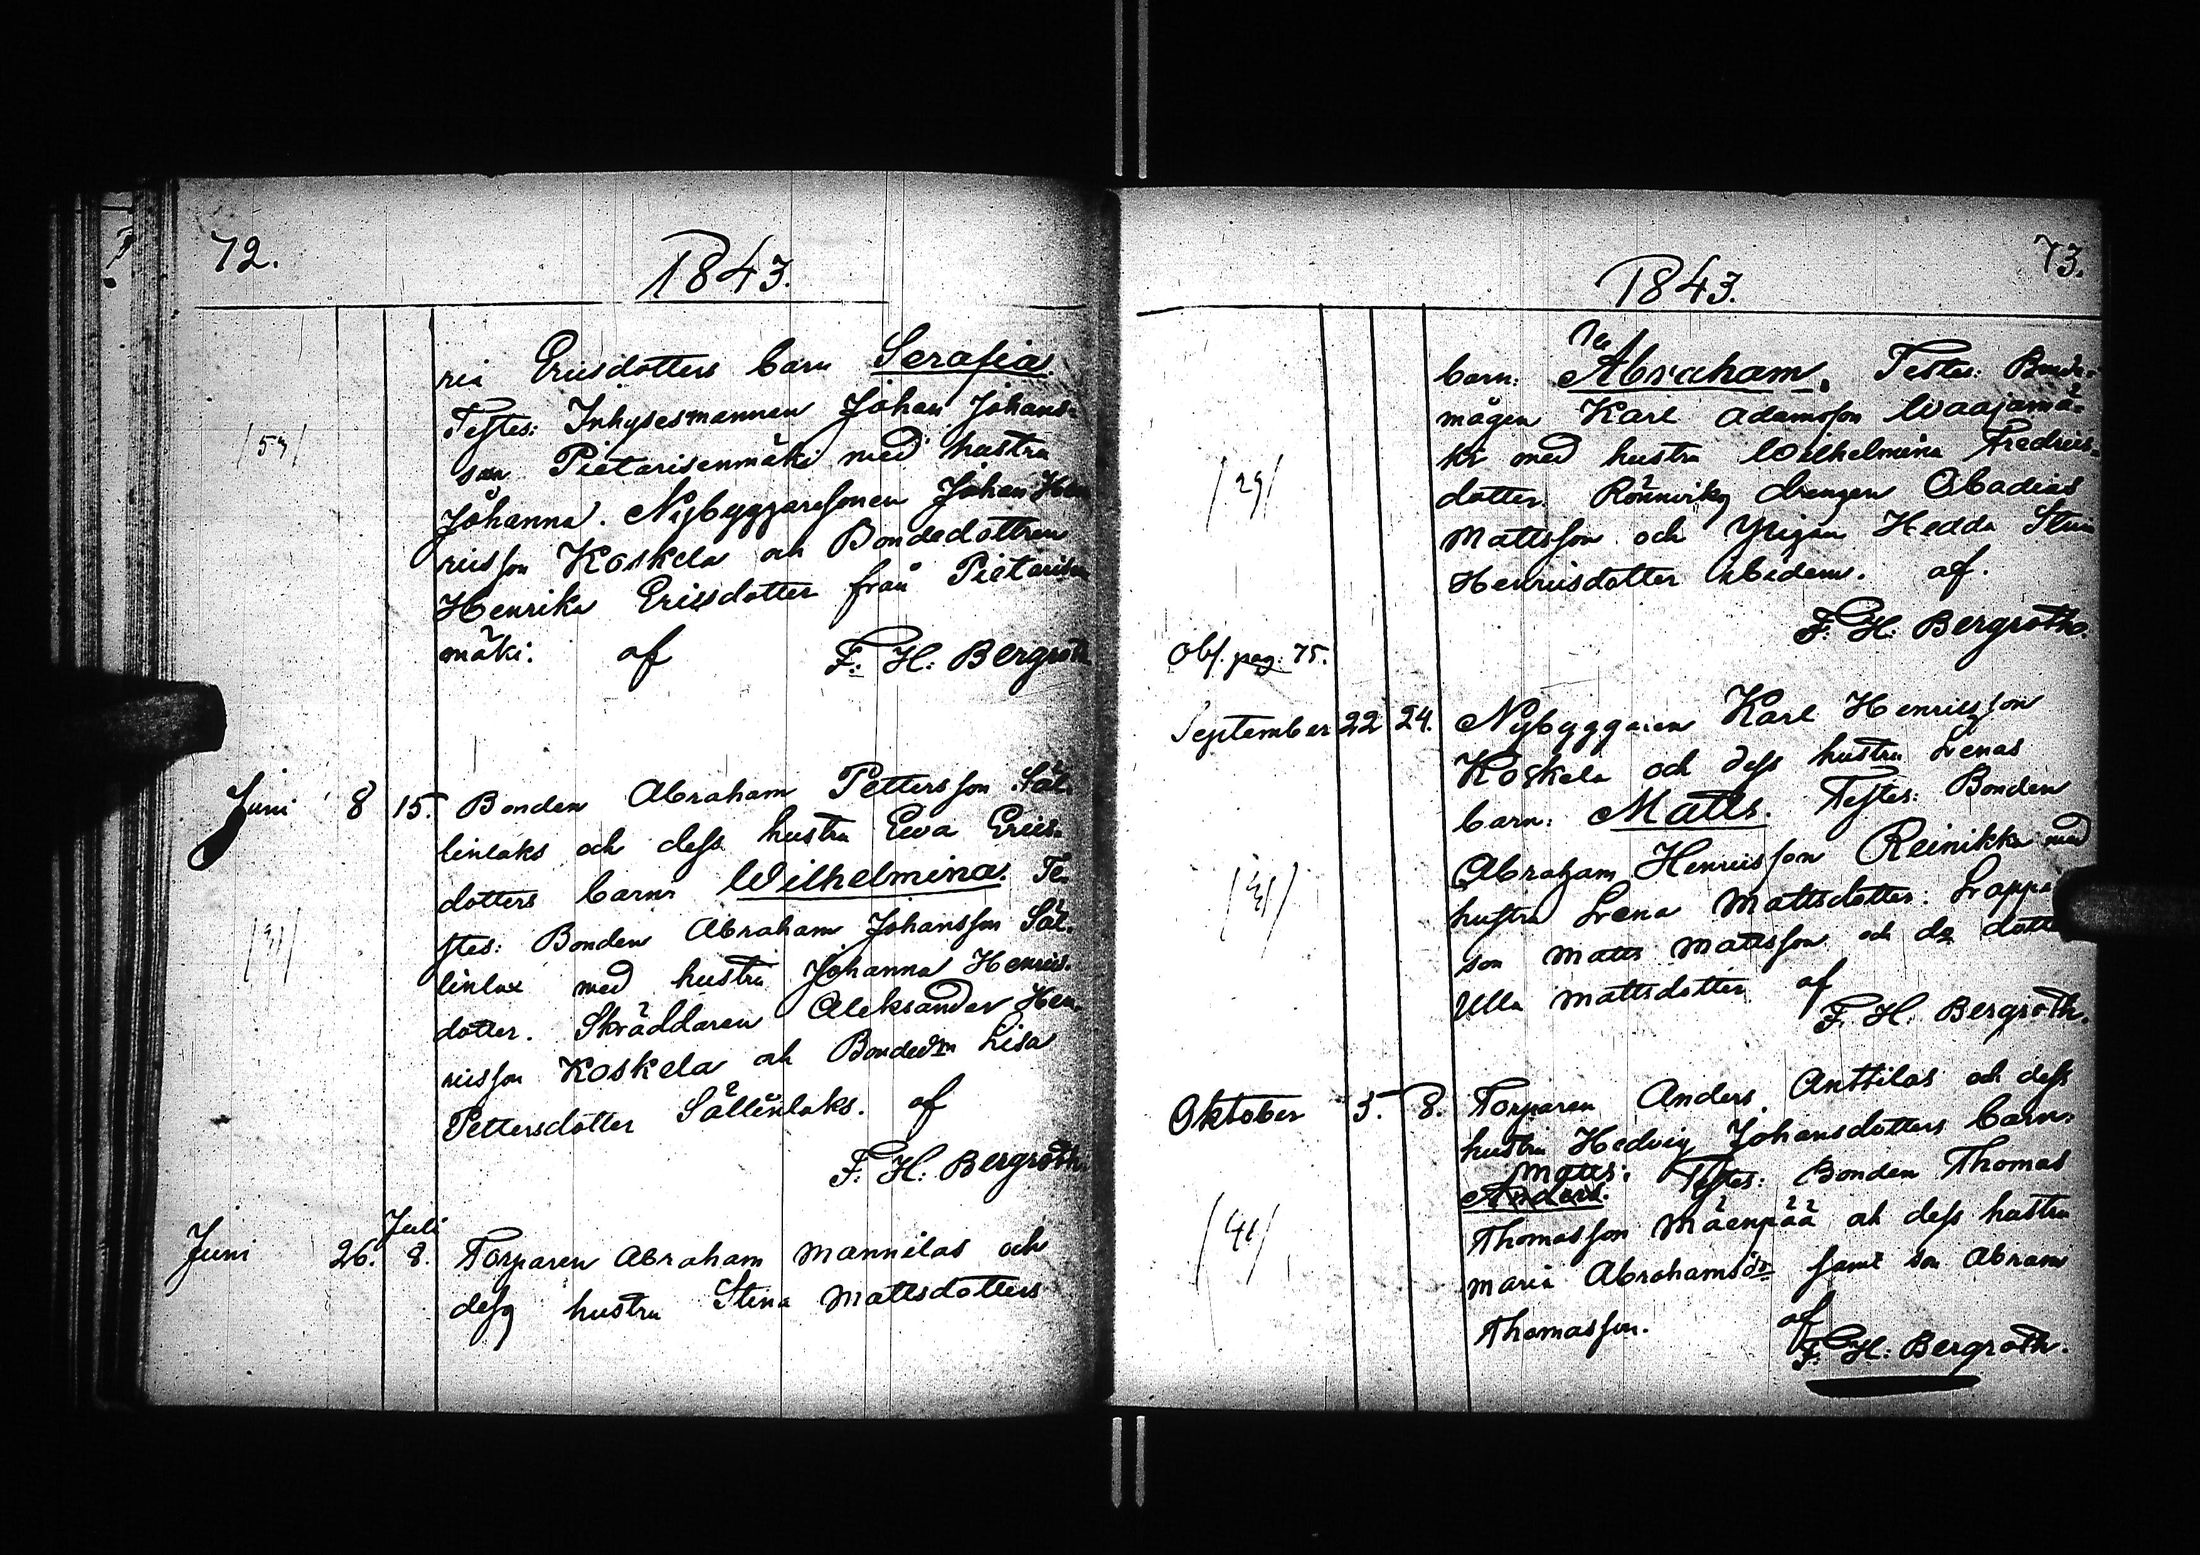 72.
1843.
ria Ericsdotters barn Serafia.
Testes: Inhysesmannen Johan Johans-
son Pietarisenmäki med hustru
/53/
Johanna. Nybyggaresonen Johan Hen
ricsson Koskela och Bondedottren
Henrika Ericsdotter från Pietarisen
mäki. af F: H: Bergroth
Juni 8 15. Bonden Abraham Pettersson Säl-
linlaks och dess hustru Ewa Erics-
dotters barn: Wilhelmina. Te-
stes: Bonden Abraham Johansson Säl-
/31/
linlax med hustru Johanna Henrics-
dotter. Skräddaren Aleksander Hen-
ricsson Koskela och Bonded:n Lisa
Pettersdotter Sällinlaks. af
F: H: Bergroth.
Juli
Juni 26. 8. Torparen Abraham Mannilas och
dess hustru Stina Mattsdotters
73.
1843.
barn: Abraham. Testes: Bonde-
mågen Karl Adamsson Waajamä-
ki med hustru Wilhelmina Fredrics-
/29/
dotter. drengen Obadias
Mattsson och Pigan Hedda Stina
Henricsdotter ibidem. af.
F: H: Bergroth.
Obs. pag: 75.
September 22 24. Nybyggaren Karl Henricsson
Koskela och dess hustru Lenas
barn: Matts. Testes: Bonden
Abraham Henricsson Reinikka med
/31/
hustru Lena Mattsdotter: Lappe
son Matts Mattsson och do dotter
Ulla Mattsdotter af
F. H: Bergroth.
Oktober 3. 8. Torparen Anders Anttilas och dess
hustru Hedvig Johansdotters barn:
Matts.
Anders. Testes: Bonden Thomas
Thomasson Mäenpää och dess hustru
/41/
Maria Abrahamsdr samt son Abram
Thomasson. af
F: H: Bergroth.